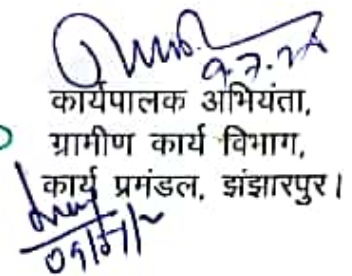 9.7.24
कार्यपालक अभियंता,
ग्रामीण कार्य विभाग,
कार्य प्रमंडल, झंझारपुर।